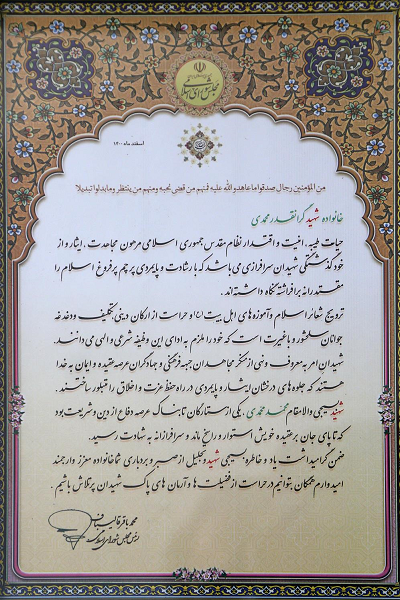 مجلس شورای اسلامی
اسفند ماه ۱۴۰۰
من المؤمنین رجال صدقوا ما عاهدوالله علیه فمنهم من قضی نحبه ومنهم من ینتظر ومابدلوا تبدیلا
خانواده شهید گرانقدر محمدی
حیات طیبه، امنیت و اقتدار نظام مقدس جمهوری اسلامی مرهون مجاهدت، ایثار و از
خودگذشتگی شهیدان سرافرازی می باشد که با رشادت و پایمردی پرچم پرفروغ اسلام را
مقتدرانه برافراشته نگاه داشته‌اند.
ترویج شعائر اسلام و آموزه‌های اهل بیت (ع) و حراست از ارکان دینی، تکلیف و دغدغه
جوانان سلحشور و باغیرت است که خود را ملزم به ادای این وظیفه شرعی و الهی می دانند.
شهیدان امر به معروف و نهی از منکر مجاهدان جبهه فرهنگی و جهادگران عرصه عقیده و ایمان به خدا
هستند که جلوه های درخشان ایثار و پایمردی در راه حفظ عزت و اخلاق را متبلور ساختند.
شهید بسیجی والامقام محمد محمدی، یکی از ستارگان تابناک عرصه دفاع از دین و شریعت بود
که تا پای جان بر عقیده خویش استوار و راسخ ماند و سرافرازانه به شهادت رسید.
ضمن گرامیداشت یاد و خاطره بسیجی شهید و تجلیل از صبر و بردباری شما خانواده معزز و ارجمند
امیدوارم همگان بتوانیم در حراست از فضیلت ها و آرمان های پاک شهیدان پرتلاش باشیم.
محمد باقر قالیباف
رئیس مجلس شورای اسلامی